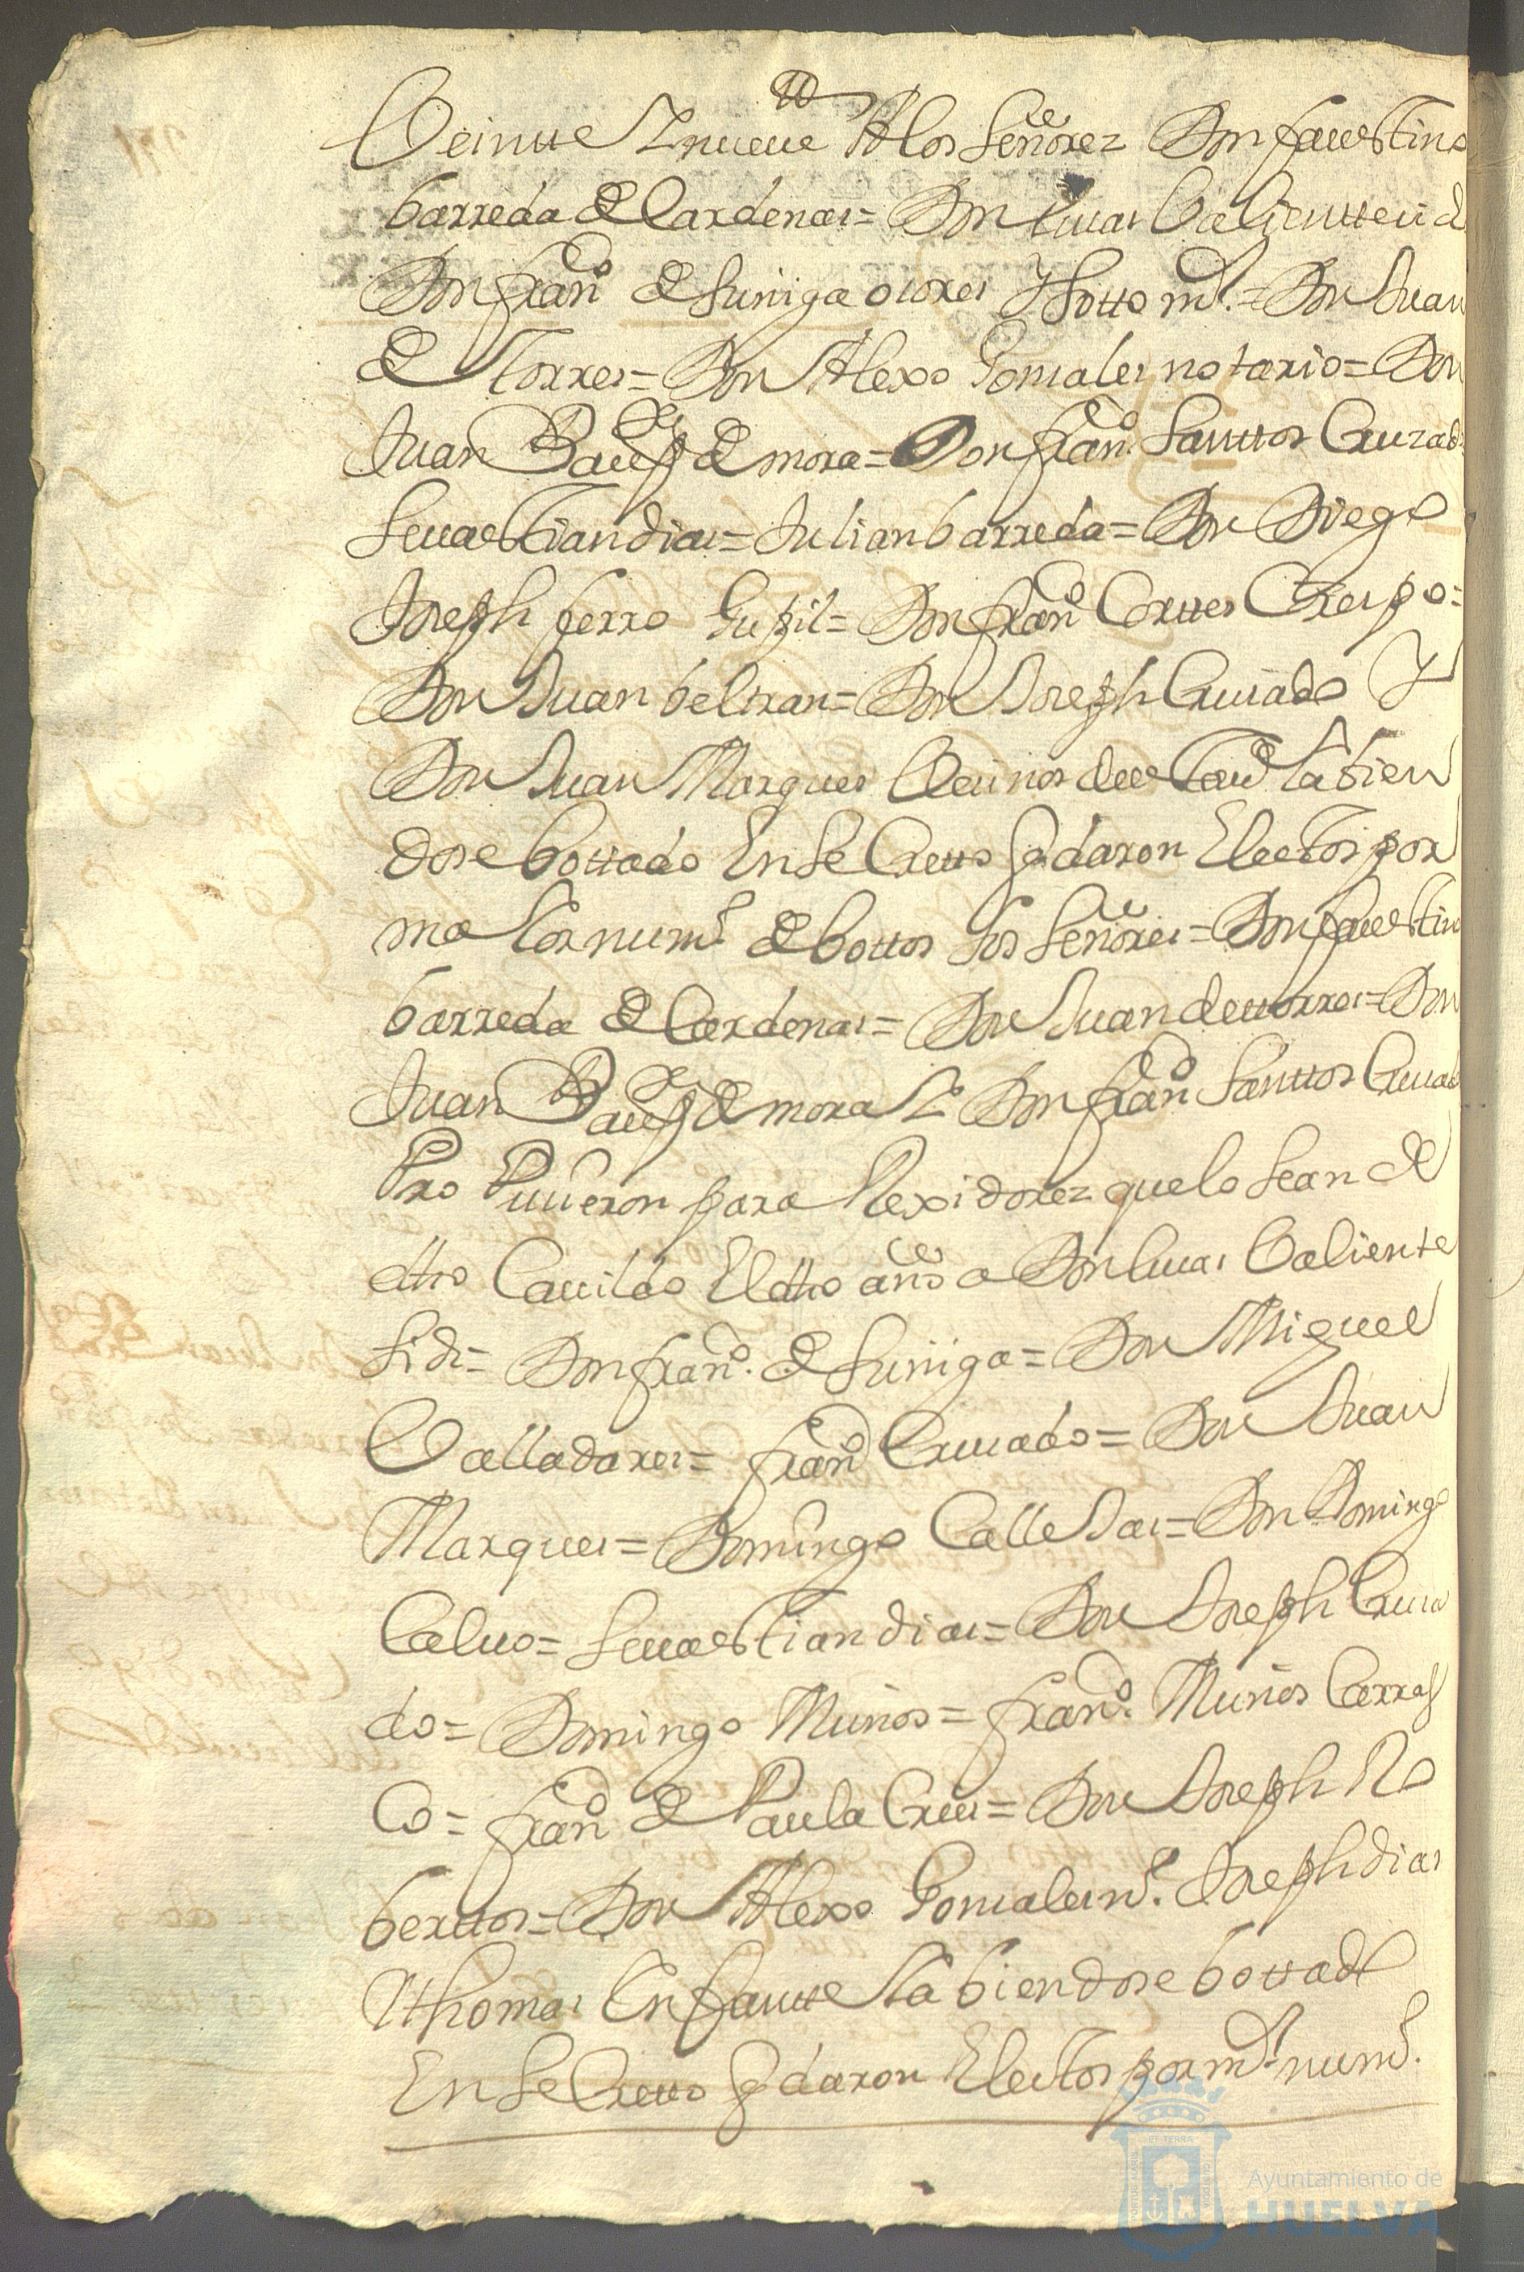 Veintte Y nueve A los Señorez Don faustino
barreda de Cardenas = Don lucas Valientte
Don fran.co de suniga osores Y Sotto m.r = Don Juan
de Torres = Don Alexo Gonsales notario = Don
Juan Bau.ta de mora = Don fran.co Santtos Cruzado
Sevastian dias = Julian barreda = Don Diego
Joseph ferro Gupil = Don fran.co Corttes Crespo =
Don Juan beltran = Don Joseph Crusado Y
Don Juan Marques Vecinos de esta Va habien
dose bottado En Secretto q.daron Electos por
maior num.o de bottos los Señores = Don faustino
barreda de Cardenas = Don Juan de ttorres = Don
Juan Bau.ta de mora Y Don fran.co Santtos Crusado
Pro Pusieron para Rexidorez que lo sean de
dho Cavildo El dho año a Don lucas Valiente
Sid = Don fran.co de suniga = Don Miguel
Valladares = fran.co Crusado = Don Juan
Marques = Domingo Calle Jas = Don Domingo
Calvo = Sevastian dias = Don Joseph Crusa
do = Domingo Muños = fran.co Muños Carras
Co = fran.co de Paula Crus = Don Joseph Ro
berttos = Don Alexo Gonsales n.o Joseph dias
Y thomas Enfantte Habiendose bottado
En Secretto q.daron Electos por m.r num.o
Ayuntamiento de
HUELVA